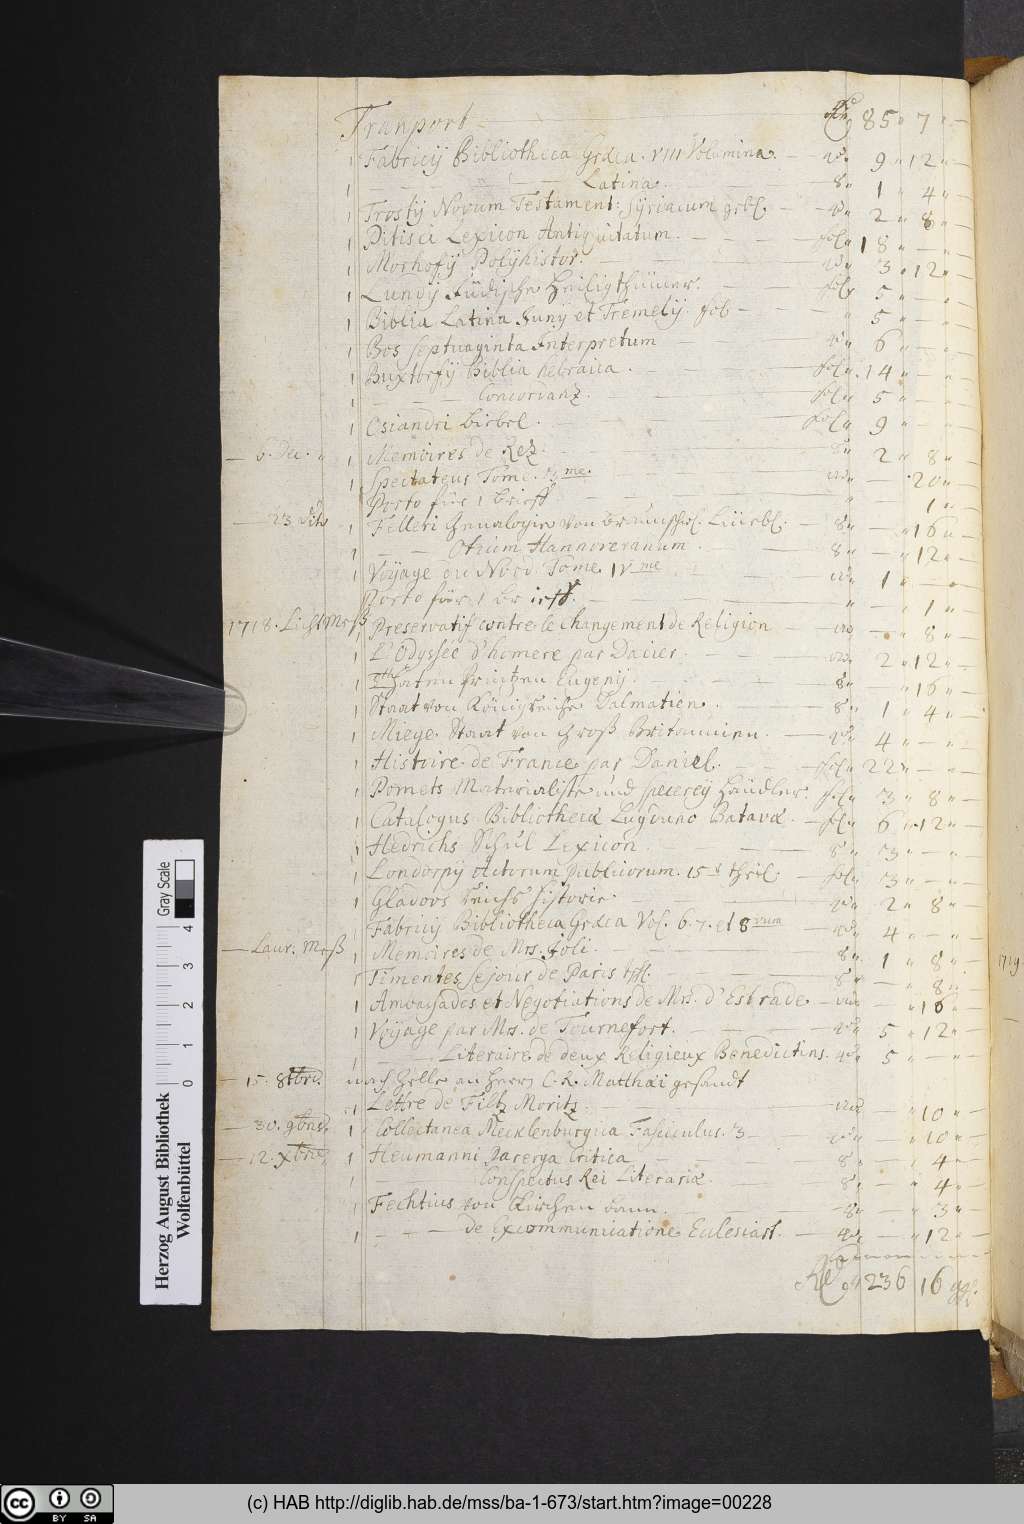 Tranport — 85 " 7 " —
1 Fabricij Bibliotheca Græca. VIII Volumina. — 9 " 12 " —
1 — — — Latina. — 8" 1 " 4 " —
1 Trostij Novum Testament: syriacum — 2 " 8 " —
1 Pitisci Lexicon Antiquitatum. — fol" 18 " — " —
1 Morhofij Polyhistor. — 3 " 12 " —
1 Lundij Jüdische Heiligthümer. — fol" 5 " — " —
1 Biblia Latina Junij et Tremelij. fol — " 5 " — " —
1 Bos septuaginta Interpretum — 6 " — " —
1 Buxtorfij Biblia hebraica. — fol" 14 " — " —
1 — — — Concordanz. — fol" 5 " — " —
1 Osiandri Biebel. — fol" 9 " — " —
— 6. Dec. " 1 Memoires de Rez. — 8" 2 " 8 " —
1 Spectateur Tome me. — " 20 " —
Porto für 1 brieff — " 1 " —
— 23 dito 1 Felleri Genealogie von Braunschw. Lüneb. — 8" — " 16 " —
1 — — Otium Hannoveranum. — 8" — " 12 " —
1 Voyage du Nord Tome IV me — 1 " — " —
Porto für 1 brieff. — " — " 1 " —
1718. Lichtmeß 1 Preservatif contre le changement de Religion — " 8 " —
1 L'Odyssée d'homere par Dacier. — 2 " 12 " —
1 Thaten Printzen Eugenij. — 8" — " 16 " —
1 Staat von Königreiche Dalmatien. — 8" 1 " 4 " —
1 Miege. Staat von Groß Britannien. — 4 " — " —
1 Histoire de France par Daniel. — fol" 22 " — " —
1 Pomets Materialiste und specerey Händler. fol" 3 " 8 " —
1 Catalogus Bibliothecæ Lugduno Batavæ. — fol" 6 " 12 " —
1 Hedrichs Schul Lexicon. — 8" 3 " — " —
1 Londorpij Actorum publicorum. 15 theil — fol" 3 " — " —
1 Gladovs Reichs historie. — 2 " 8 " —
Fabricij Bibliotheca Græca Vol. 6. 7. et 8 vum — 4 " — " —
— Laur. Meß 1 Memoires de Mrs. Joli — 8" 1 " 8 " —
1 Timentes sejour de Paris — 8" — " 8 " —
1 Ambassades et Negotiations de Mrs. d'Estrade — " 16 " —
1 Voyage par Mrs. de Tournefort. — 5 " 12 " —
1 — — Literaire de deux Religieux Benedictins. 5 " — " —
— 15. 8tbris. nach Zelle an Herrn C. R. Matthäi gesandt
1 Lettre de Filtz Moritz — " 10 " —
— 30. 9bris. 1 Collectanea Mecklenburgica Fasciculus. 3 — " 10 " —
— 12. Xbris 1 Heumanni parerga Critica — 8" — " 4 " —
1 — — — Conspectus Rei Literariæ. — 8" — " 4 " —
1 Fechtius von Kirchen bann. — 8" — " 3 " —
1 — — — de Excommunicatione Eclesiast. — " 12 " —
236 16
1719
Herzog August Bibliothek
Wolfenbüttel
0 1 2 3 4
Gray Scale
(c) HAB http://diglib.hab.de/mss/ba-1-673/start.htm?image=00228
cc BY SA